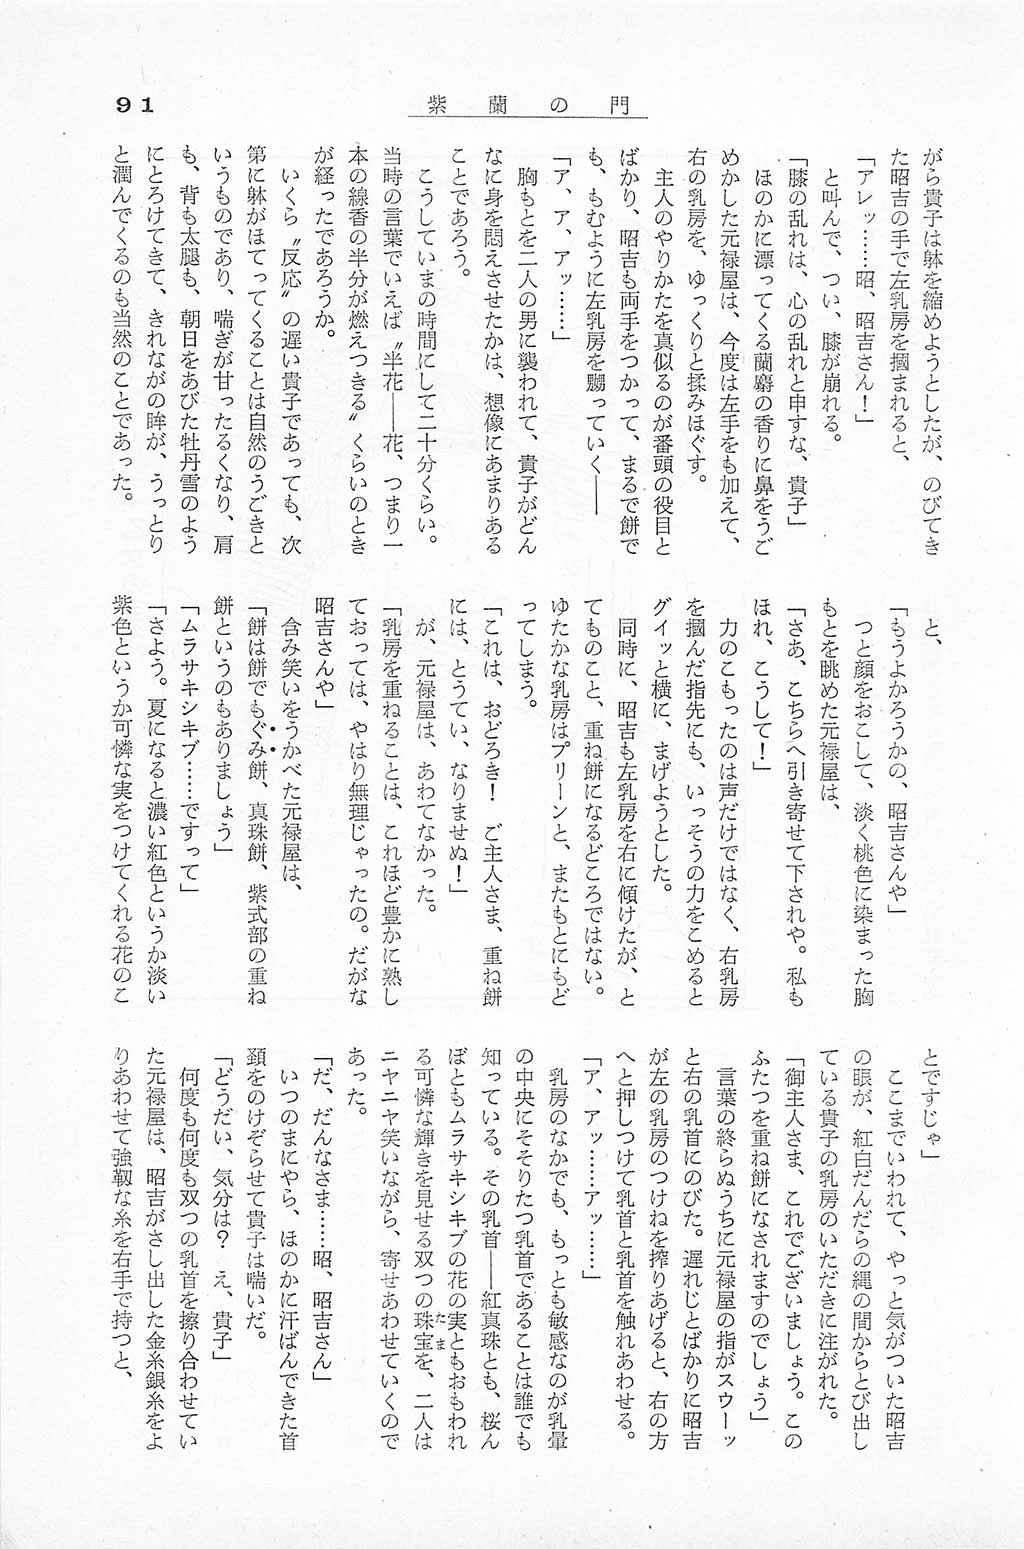 91
紫蘭の門
がら貴子は躰を縮めようとしたが、のびてき
た昭吉の手で左乳房を摑まれると、
「アレッ……昭、昭吉さん！」
と叫んで、つい、膝が崩れる。
「膝の乱れは、心の乱れと申すな、貴子」
ほのかに漂ってくる蘭麝の香りに鼻をうご
めかした元禄屋は、今度は左手をも加えて、
右の乳房を、ゆっくりと揉みほぐす。
主人のやりかたを真似るのが番頭の役目と
ばかり、昭吉も両手をつかって、まるで餅で
も、もむように左乳房を嬲っていく――
「ア、ア、アッ……」
胸もとを二人の男に襲われて、貴子がどん
なに身を悶えさせたかは、想像にあまりある
ことであろう。
こうしていまの時間にして二十分くらい。
当時の言葉でいえば〝半花――花、つまり一
本の線香の半分が燃えつきる〟くらいのとき
が経ったであろうか。
いくら〝反応〟の遅い貴子であっても、次
第に躰がほてってくることは自然のうごきと
いうものであり、喘ぎが甘ったるくなり、肩
も、背も太腿も、朝日をあびた牡丹雪のよう
にとろけてきて、きれながの眸が、うっとり
と潤んでくるのも当然のことであった。
と、
「もうよかろうかの、昭吉さんや」
つと顔をおこして、淡く桃色に染まった胸
もとを眺めた元禄屋は、
「さあ、こちらへ引き寄せて下されや。私も
ほれ、こうして！」
力のこもったのは声だけではなく、右乳房
を摑んだ指先にも、いっそうの力をこめると
グイッと横に、まげようとした。
同時に、昭吉も左乳房を右に傾けたが、と
てものこと、重ね餅になるどころではない。
ゆたかな乳房はプリーンと、またもとにもど
ってしまう。
「これは、おどろき！　ご主人さま、重ね餅
には、とうてい、なりませぬ！」
が、元禄屋は、あわてなかった。
「乳房を重ねることは、これほど豊かに熟し
ておっては、やはり無理じゃったの。だがな
昭吉さんや」
含み笑いをうかべた元禄屋は、
「餅は餅でもぐみ餅、真珠餅、紫式部の重ね
餅というのもありましょう」
「ムラサキシキブ……ですって」
「さよう。夏になると濃い紅色というか淡い
紫色というか可憐な実をつけてくれる花のこ
とですじゃ」
ここまでいわれて、やっと気がついた昭吉
の眼が、紅白だんだらの縄の間からとび出し
ている貴子の乳房のいただきに注がれた。
「御主人さま、これでございましょう。この
ふたつを重ね餅になされますのでしょう」
言葉の終らぬうちに元禄屋の指がスウーッ
と右の乳首にのびた。遅れじとばかりに昭吉
が左の乳房のつけねを搾りあげると、右の方
へと押しつけて乳首と乳首を触れあわせる。
「ア、アッ……アッ……」
乳房のなかでも、もっとも敏感なのが乳暈
の中央にそそりたつ乳首であることは誰でも
知っている。その乳首――紅真珠とも、桜ん
ぼともムラサキシキブの花の実ともおもわれ
る可憐な輝きを見せる双つの珠宝たまを、二人は
ニヤニヤ笑いながら、寄せあわせていくので
あった。
「だ、だんなさま……昭、昭吉さん」
いつのまにやら、ほのかに汗ばんできた首
頚をのけぞらせて貴子は喘いだ。
「どうだい、気分は？　え、貴子」
何度も何度も双つの乳首を擦り合わせてい
た元禄屋は、昭吉がさし出した金糸銀糸をよ
りあわせて強靱な糸を右手で持つと、